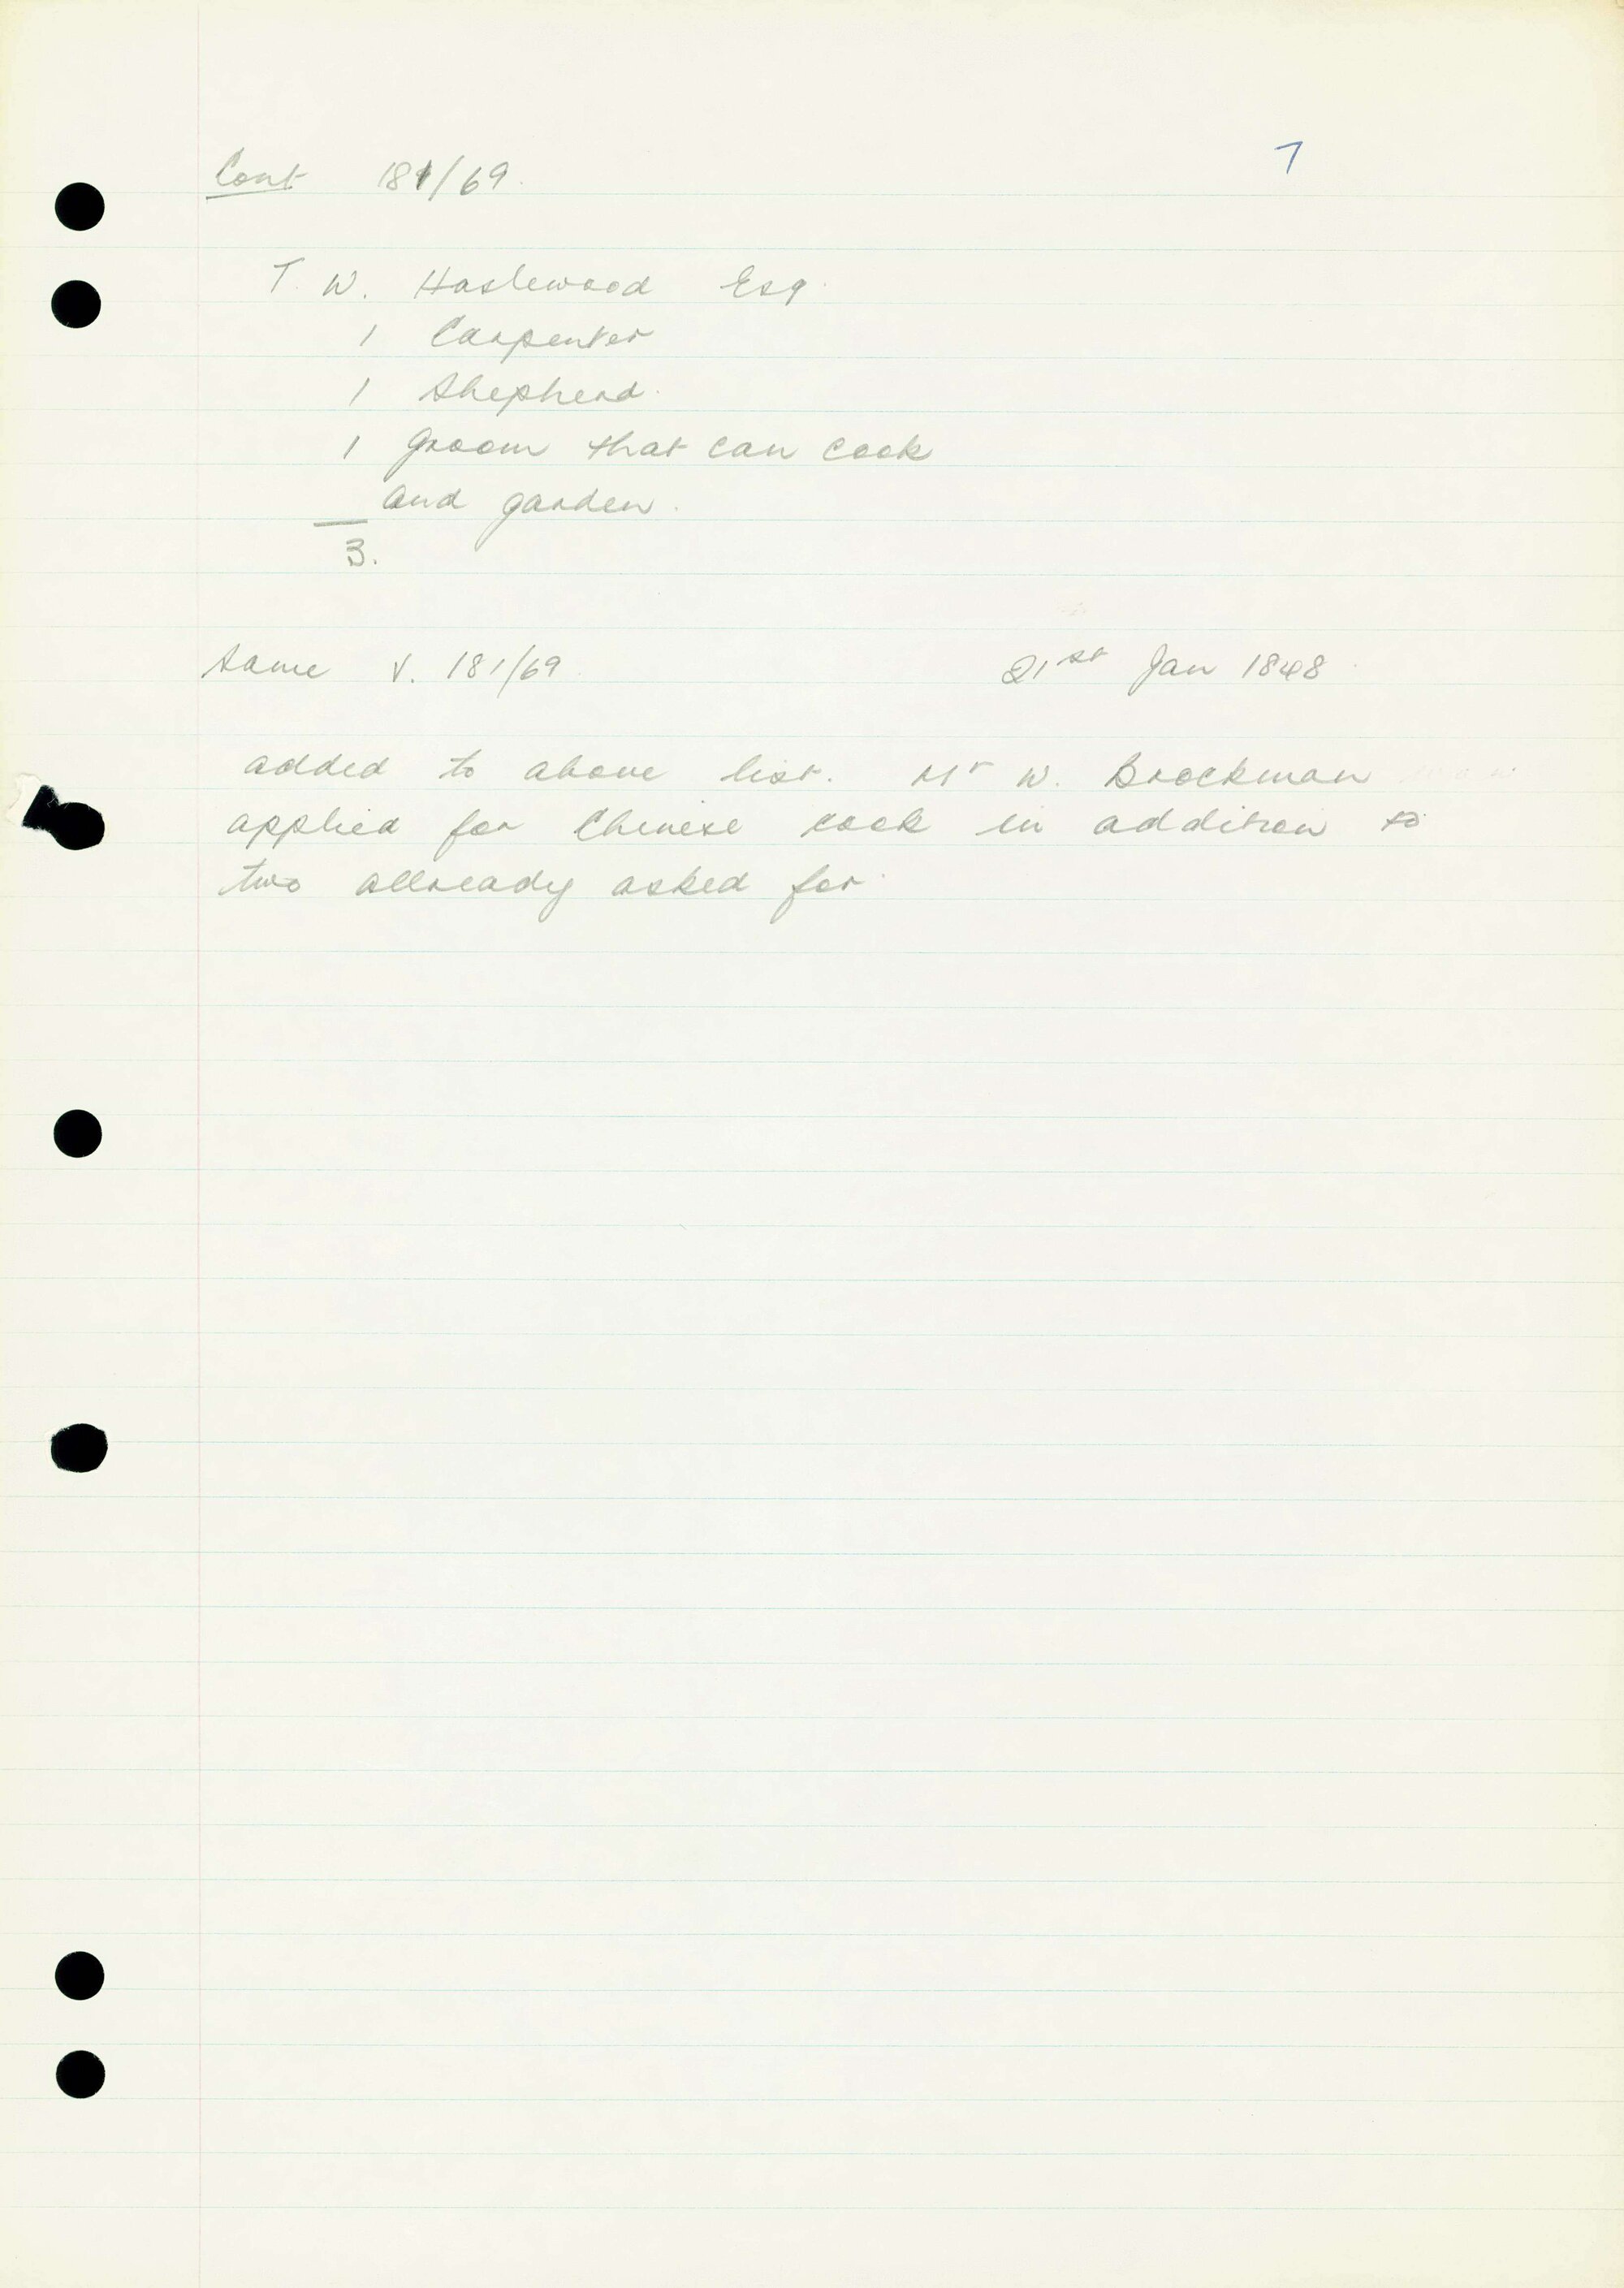 7
Cont 181/69.
T. W. Haslewood Esq.
1 Carpenter
1 Shepherd.
1 groom that can cook
and garden.
3.
Same V. 181/69 21st Jan 1848.
added to above list. Mr W. Brockman
applied for Chinese cook in addition to
two allready asked for.